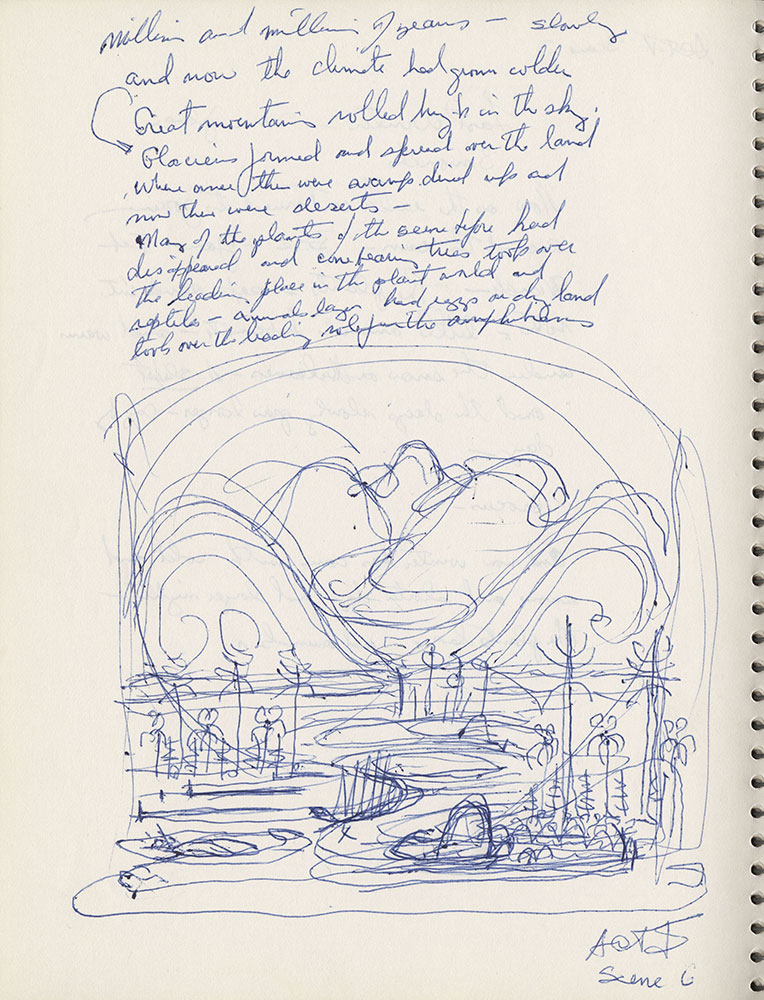 millions and millions of years — slowly
and now the climate had grown colder
Great mountains rolled high in the sky.
Glaciers formed and spread over the land
Where once there were swamps dried up and
now there were deserts —
Many of the plants of the scene before had
disappeared and cone bearing trees took over
the leading place in the plant world and
reptiles — animals had eggs on dry land
took over the leading role from the amphibians
Act I
Scene 6